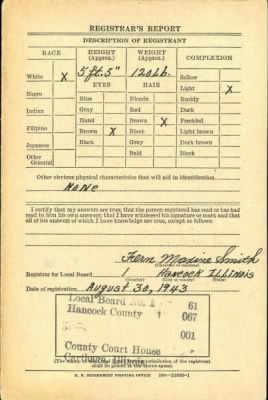 REGISTRAR'S REPORT
DESCRIPTION OF REGISTRANT
RACE HEIGHT (Approx.) WEIGHT (Approx.) COMPLEXION
White X 5 ft. 5" 120 Lb. Sallow
EYES HAIR Light X
Negro Blue Blonde Ruddy
Indian Gray Red Dark
Hazel Brown X Freckled
Filipino Brown X Black Light brown
Japanese Black Gray Dark brown
Other Oriental Bald Black
Other obvious physical characteristics that will aid in identification
None
I certify that my answers are true; that the person registered has read or has had
read to him his own answers; that I have witnessed his signature or mark and that
all of his answers of which I have knowledge are true, except as follows:
Fern Maxine Smith
Registrar for Local Board 1 Hancock ILLINOIS
(Number) (City or county) (State)
Date of registration August 30, 1943
Local Board No. 1 61
Hancock County 067
001
County Court House
Carthage, Illinois
U. S. GOVERNMENT PRINTING OFFICE